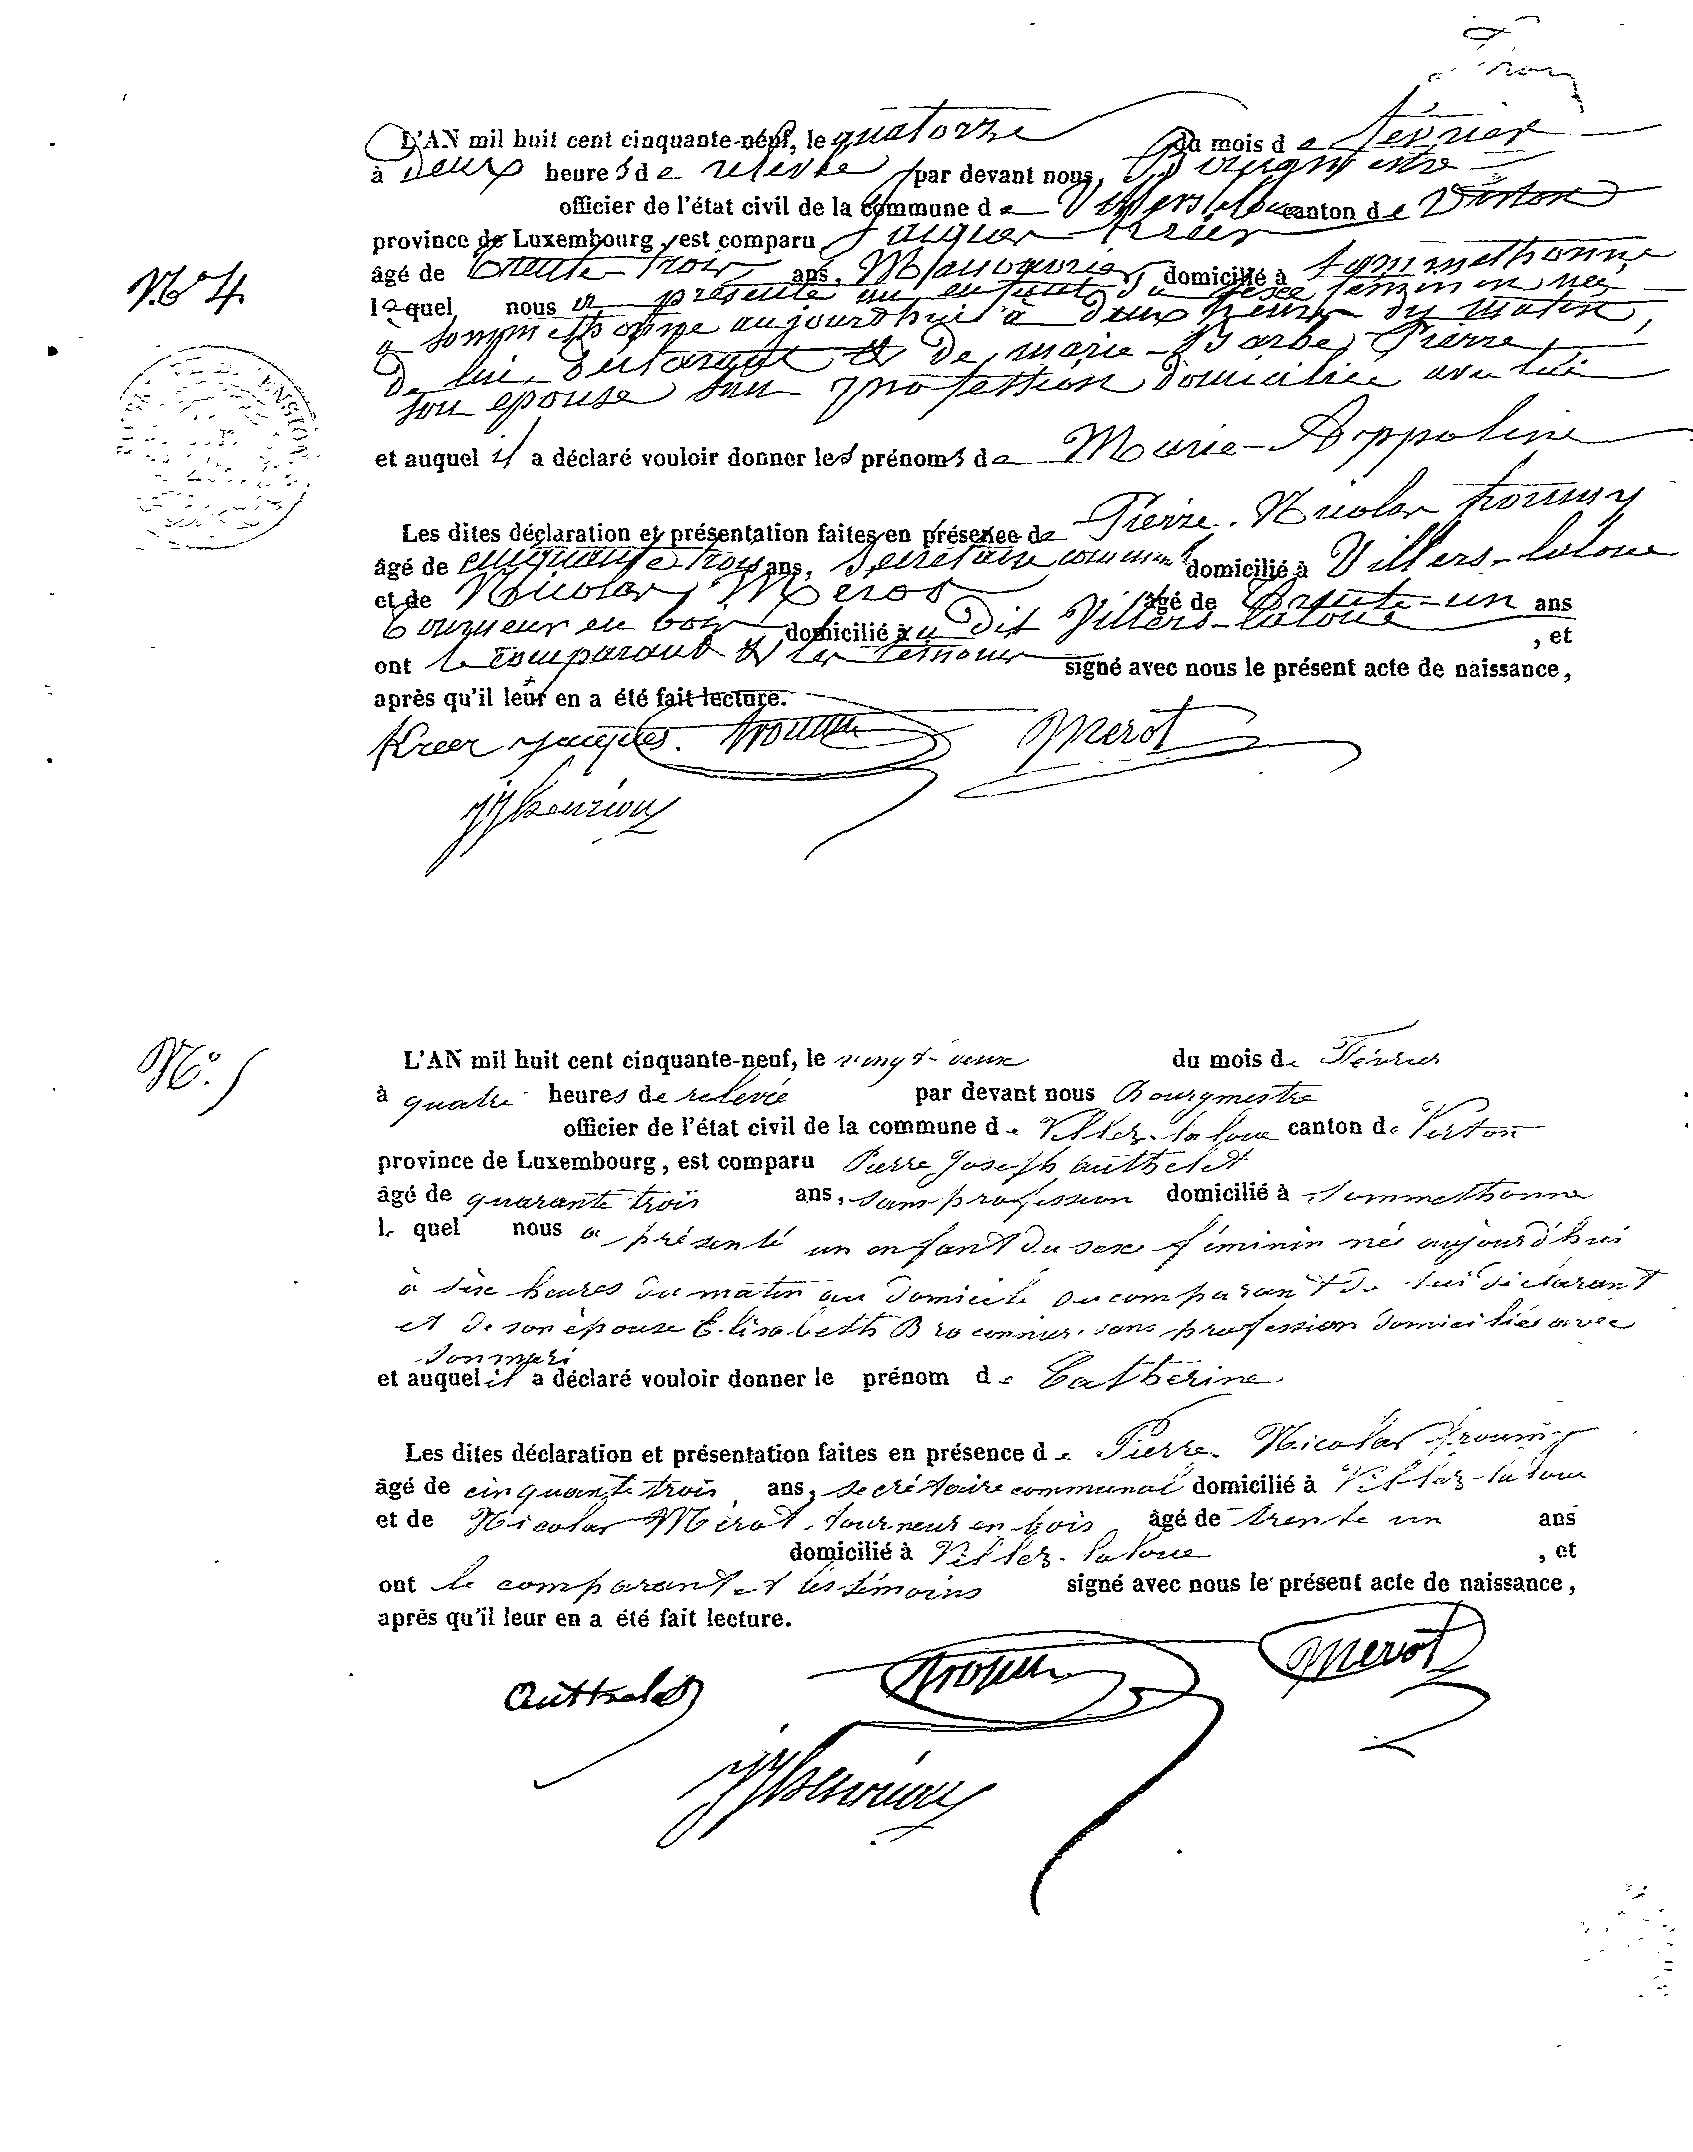 L'AN mil huit cent cinquante-neuf, le quatorze du mois de février
à deux heures de relevée par devant nous, Bourgmestre
officier de l'état civil de la commune de Villers-laloue canton de Virton
province de Luxembourg, est comparu Jacques Kréer
âgé de trente-trois ans, Manoeuvrier, domicilié à Sommethonne
lequel nous a présenté un enfant du sexe féminin née
à Sommethonne aujourd'hui à deux heures du matin,
De lui Déclarant et de marie-Barbe Pierre,
son épouse sans profession domiciliée avec lui
N° 4
et auquel il a déclaré vouloir donner les prénoms de Marie-Appoline
Les dites déclaration et présentation faites en présence de Pierre-Nicolas
âgé de cinquante trois ans, Secrétaire communal domicilié à Villers-laloue
et de Nicolas Merot âgé de trente-un ans
tourneur en bois domicilié au Dit Villers-laloue , et
ont le comparant et les témoins signé avec nous le présent acte de naissance,
après qu'il leur en a été fait lecture.
Kreer jacques. Merot
N°. 5
L'AN mil huit cent cinquante-neuf, le vingt-deux du mois de Février
à quatre heures de relevée par devant nous Bourgmestre
officier de l'état civil de la commune de Villez-laloue canton de Virton
province de Luxembourg, est comparu Pierre Joseph authelet
âgé de quarante trois ans, sans profession domicilié à Sommethonne
le quel nous a présenté un enfant du sexe féminin née aujourd'hui
à six heures du matin au domicile du comparant de lui déclarant
et de son épouse Elisabeth Braconnier sans profession domiciliée avec
son mari
et auquel il a déclaré vouloir donner le prénom de Catherine.
Les dites déclaration et présentation faites en présence de Pierre-Nicolas
âgé de cinquante trois ans, secrétaire communal domicilié à Villez-laloue
et de Nicolas Mérot, tourneur en bois âgé de trente un ans
domicilié à Villez-laloue , et
ont le comparant et les témoins signé avec nous le présent acte de naissance,
après qu'il leur en a été fait lecture.
Authelet Merot